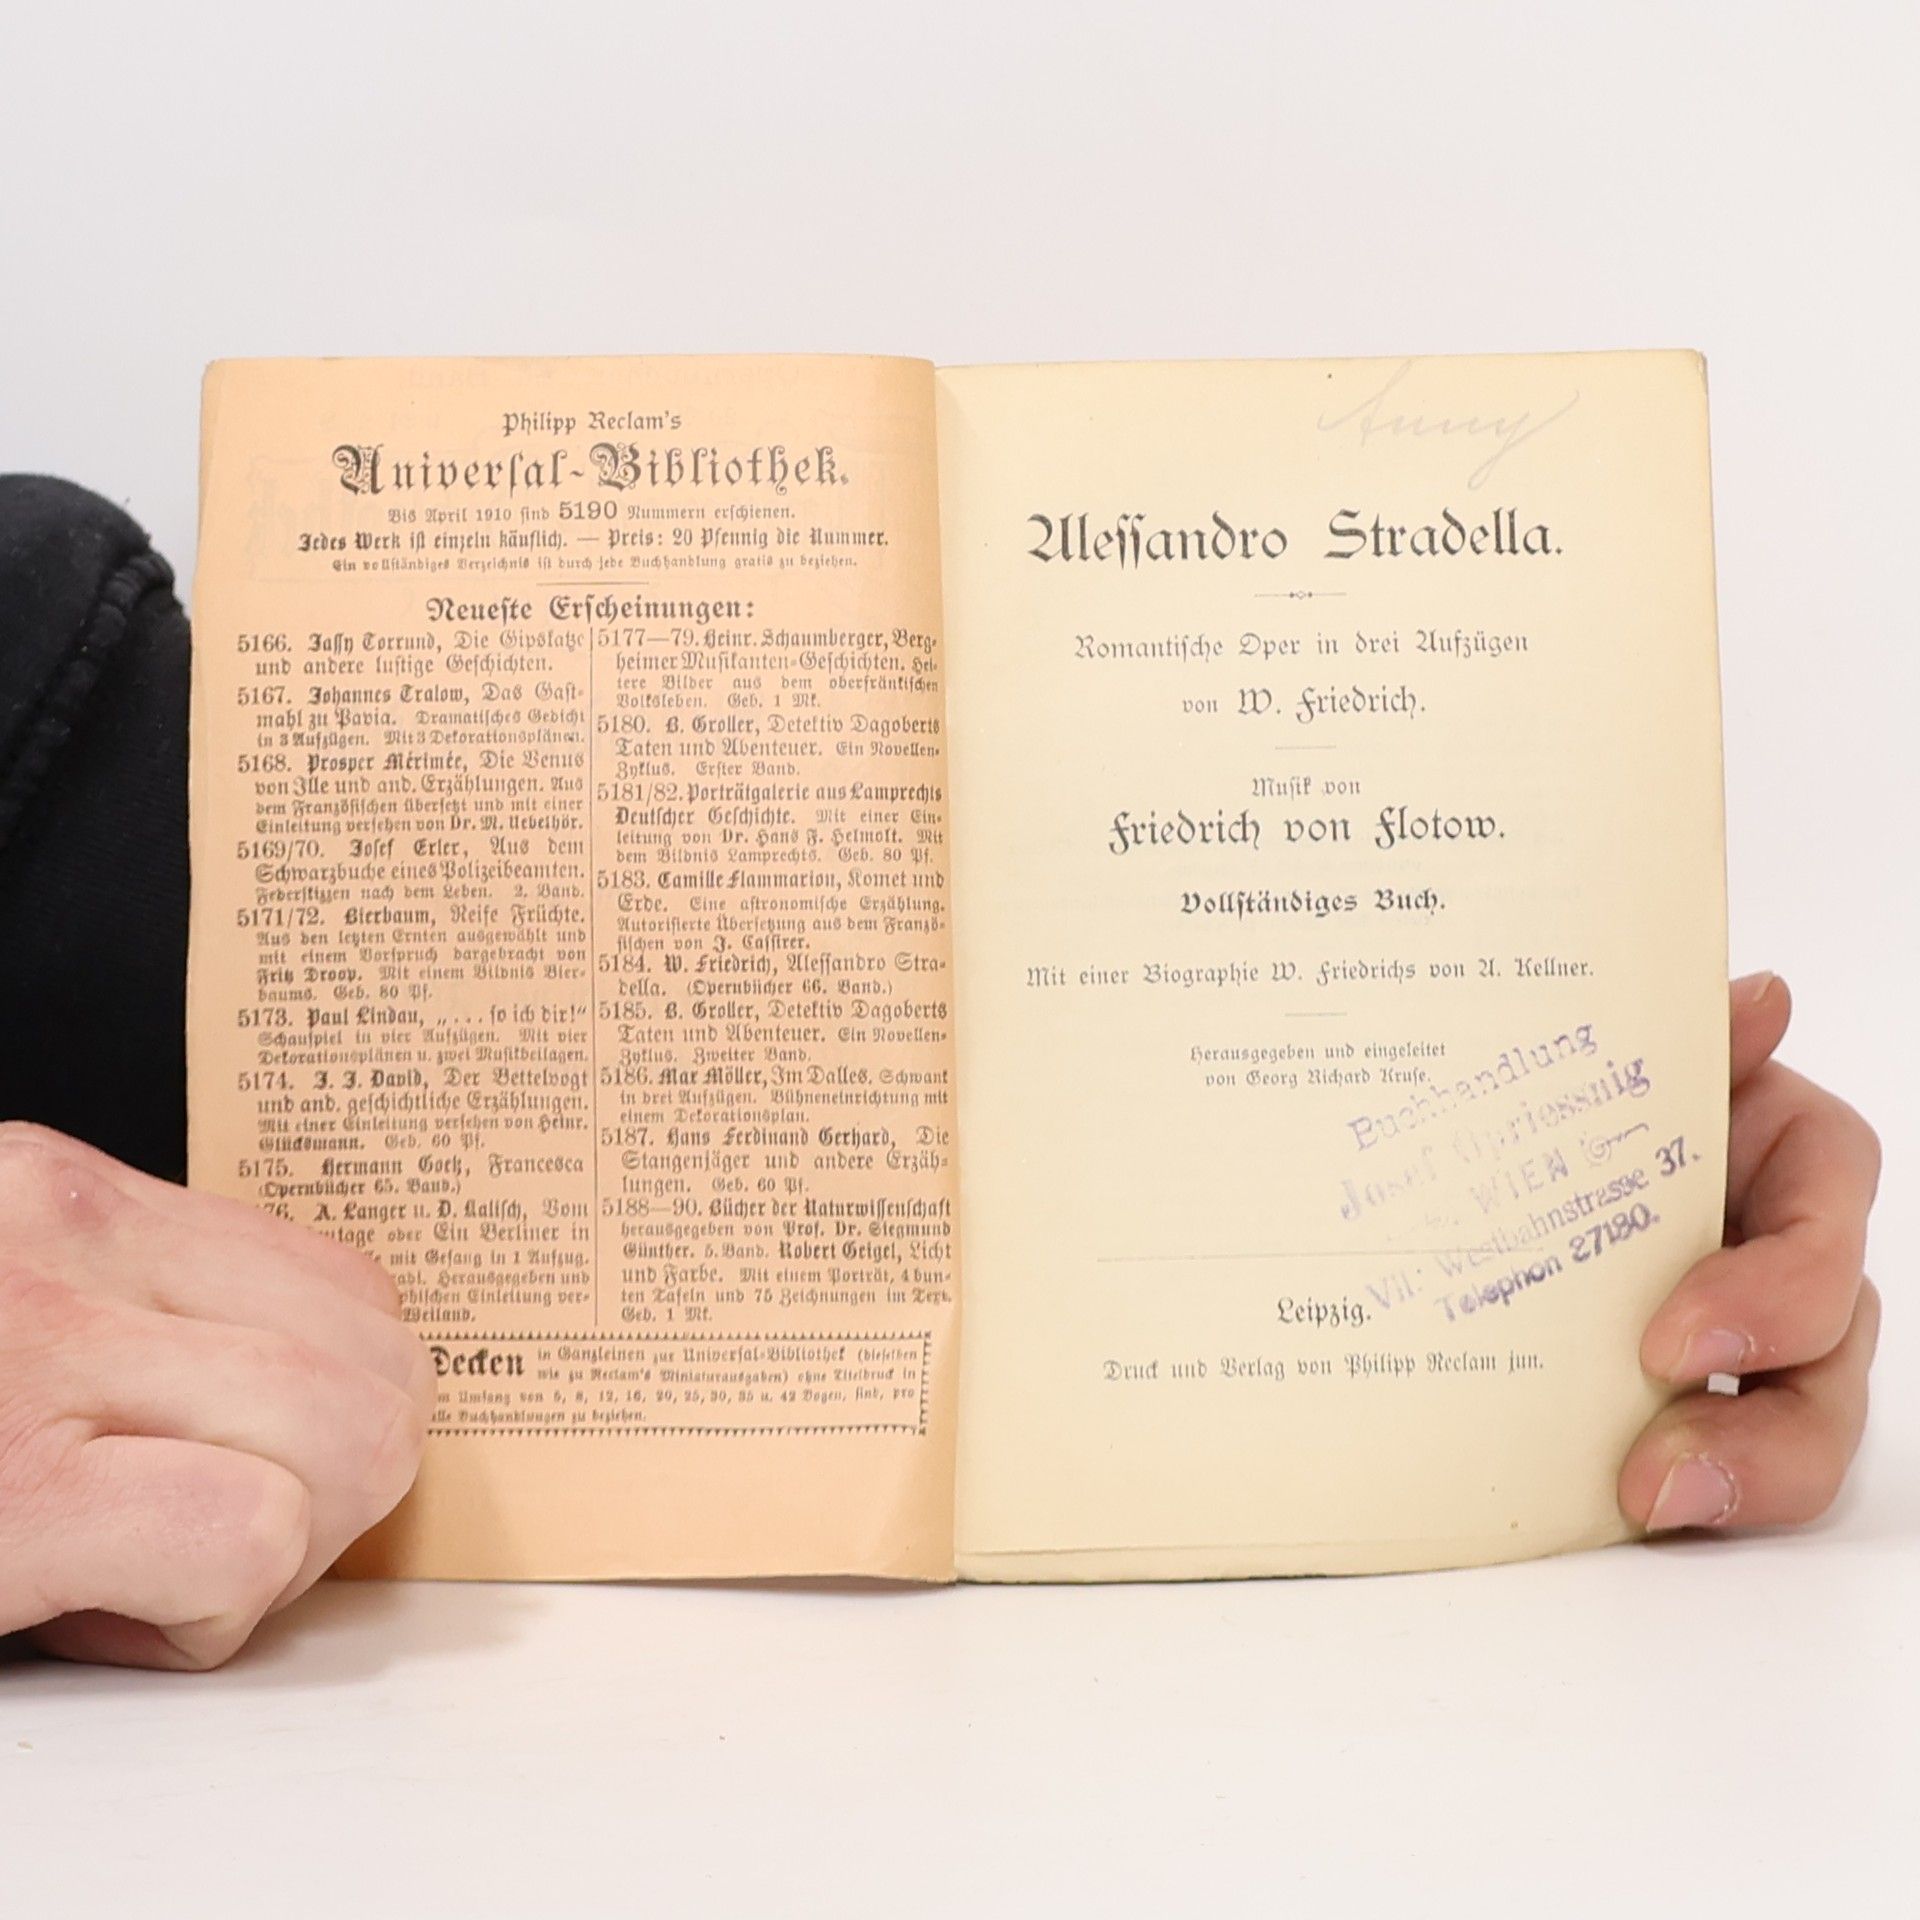 Philipp Reclam's
Universal-Bibliothek.
Bis April 1910 sind 5190 Nummern erschienen.
Jedes Werk ist einzeln käuflich. — Preis: 20 Pfennig die Nummer.
Ein vollständiges Verzeichnis ist durch jede Buchhandlung gratis zu beziehen.
Neueste Erscheinungen:
5166. Jassy Torrund, Die Gipskatze
und andere lustige Geschichten.
5167. Johannes Tralow, Das Gast-
mahl zu Pavia. Dramatisches Gedicht
in 3 Aufzügen. Mit 3 Dekorationsplänen.
5168. Prosper Mérimée, Die Venus
von Ille und and. Erzählungen. Aus
dem Französischen übersetzt und mit einer
Einleitung versehen von Dr. M. Uebelhör.
5169/70. Josef Erler, Aus dem
Schwarzbuche eines Polizeibeamten.
Federskizzen nach dem Leben. 2. Band.
5171/72. Bierbaum, Reife Früchte.
Aus den letzten Ernten ausgewählt und
mit einem Vorspruch dargebracht von
Fritz Droop. Mit einem Bildnis Bier-
baums. Geb. 80 Pf.
5173. Paul Lindau, „... so ich dir!“
Schauspiel in vier Aufzügen. Mit vier
Dekorationsplänen u. zwei Musikbeilagen.
5174. J. J. David, Der Bettelvogt
und and. geschichtliche Erzählungen.
Mit einer Einleitung versehen von Heinr.
Glücksmann. Geb. 60 Pf.
5175. Hermann Goetz, Francesca
(Opernbücher 65. Band.)
76. A. Langer u. D. Kalisch, Vom
tage oder Ein Berliner in
mit Gesang in 1 Aufzug.
Herausgegeben und
phischen Einleitung ver-
Weiland.
5177—79. Heinr. Schaumberger, Berg-
heimer Musikanten-Geschichten. Hei-
tere Bilder aus dem oberfränkischen
Volksleben. Geb. 1 Mk.
5180. B. Groller, Detektiv Dagoberts
Taten und Abenteuer. Ein Novellen-
Zyklus. Erster Band.
5181/82. Porträtgalerie aus Lamprechts
Deutscher Geschichte. Mit einer Ein-
leitung von Dr. Hans F. Helmolt. Mit
dem Bildnis Lamprechts. Geb. 80 Pf.
5183. Camille Flammarion, Komet und
Erde. Eine astronomische Erzählung.
Autorisierte Übersetzung aus dem Franzö-
sischen von J. Cassirer.
5184. W. Friedrich, Alessandro Stra-
della. (Opernbücher 66. Band.)
5185. B. Groller, Detektiv Dagoberts
Taten und Abenteuer. Ein Novellen-
Zyklus. Zweiter Band.
5186. Max Möller, Im Dalles. Schwank
in drei Aufzügen. Bühneneinrichtung mit
einem Dekorationsplan.
5187. Hans Ferdinand Gerhard, Die
Stangenjäger und andere Erzäh-
lungen. Geb. 60 Pf.
5188—90. Bücher der Naturwissenschaft
herausgegeben von Prof. Dr. Siegmund
Günther. 5. Band. Robert Geigel, Licht
und Farbe. Mit einem Porträt, 4 bun-
ten Tafeln und 75 Zeichnungen im Text.
Geb. 1 Mk.
Decken in Ganzleinen zur Universal-Bibliothek (dieselben
wie zu Reclam's Miniaturausgaben) ohne Titeldruck in
m Umfang von 5, 8, 12, 16, 20, 25, 30, 35 u. 42 Bogen, sind, pro
alle Buchhandlungen zu beziehen.
Anny
Alessandro Stradella.
Romantische Oper in drei Aufzügen
von W. Friedrich.
Musik von
Friedrich von Flotow.
Vollständiges Buch.
Mit einer Biographie W. Friedrichs von A. Kellner.
Herausgegeben und eingeleitet
von Georg Richard Kruse.
Buchhandlung
Josef Opriessnig
WIEN
VII. Westbahnstrasse 37.
Telephon 27180.
Leipzig.
Druck und Verlag von Philipp Reclam jun.